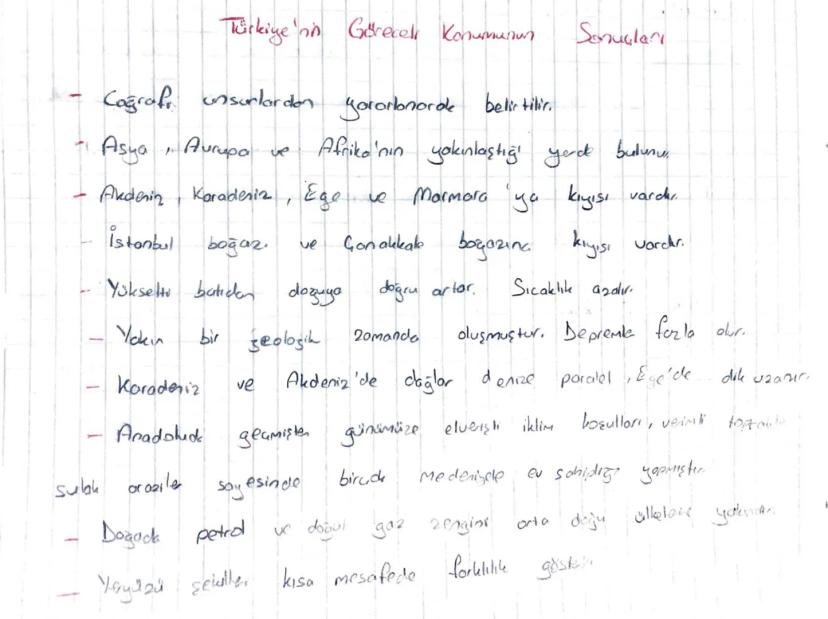 Türkiye'nin Göreceli Konumunun Sonuçları
- Coğrafi unsurlardan yararlanarak belirtilir.
- Asya, Avrupa ve Afrika'nın yakınlaştığı yerde bulunur.
- Akdeniz, Karadeniz, Ege ve Marmara'ya kıyısı vardır.
- İstanbul boğazı ve Çanakkale boğazına kıyısı vardır.
- Yükselti batıdan doğuya doğru artar. Sıcaklık azalır.
- Yakın bir jeolojik zamanda oluşmuştur. Depremler fazla olur.
- Karadeniz ve Akdeniz'de dağlar denize paralel, Ege'de dik uzanır.
- Anadoluda geçmişten günümüze elverişli iklim koşulları, verimli
sulak araziler sayesinde birçok medeniyete ev sahipliği yapmıştır.
- Doğuda petrol ve doğal gaz zengini orta doğu ülkelere yakındır.
- Yeryüzü şekilleri kısa mesafede farklılık gösterir.